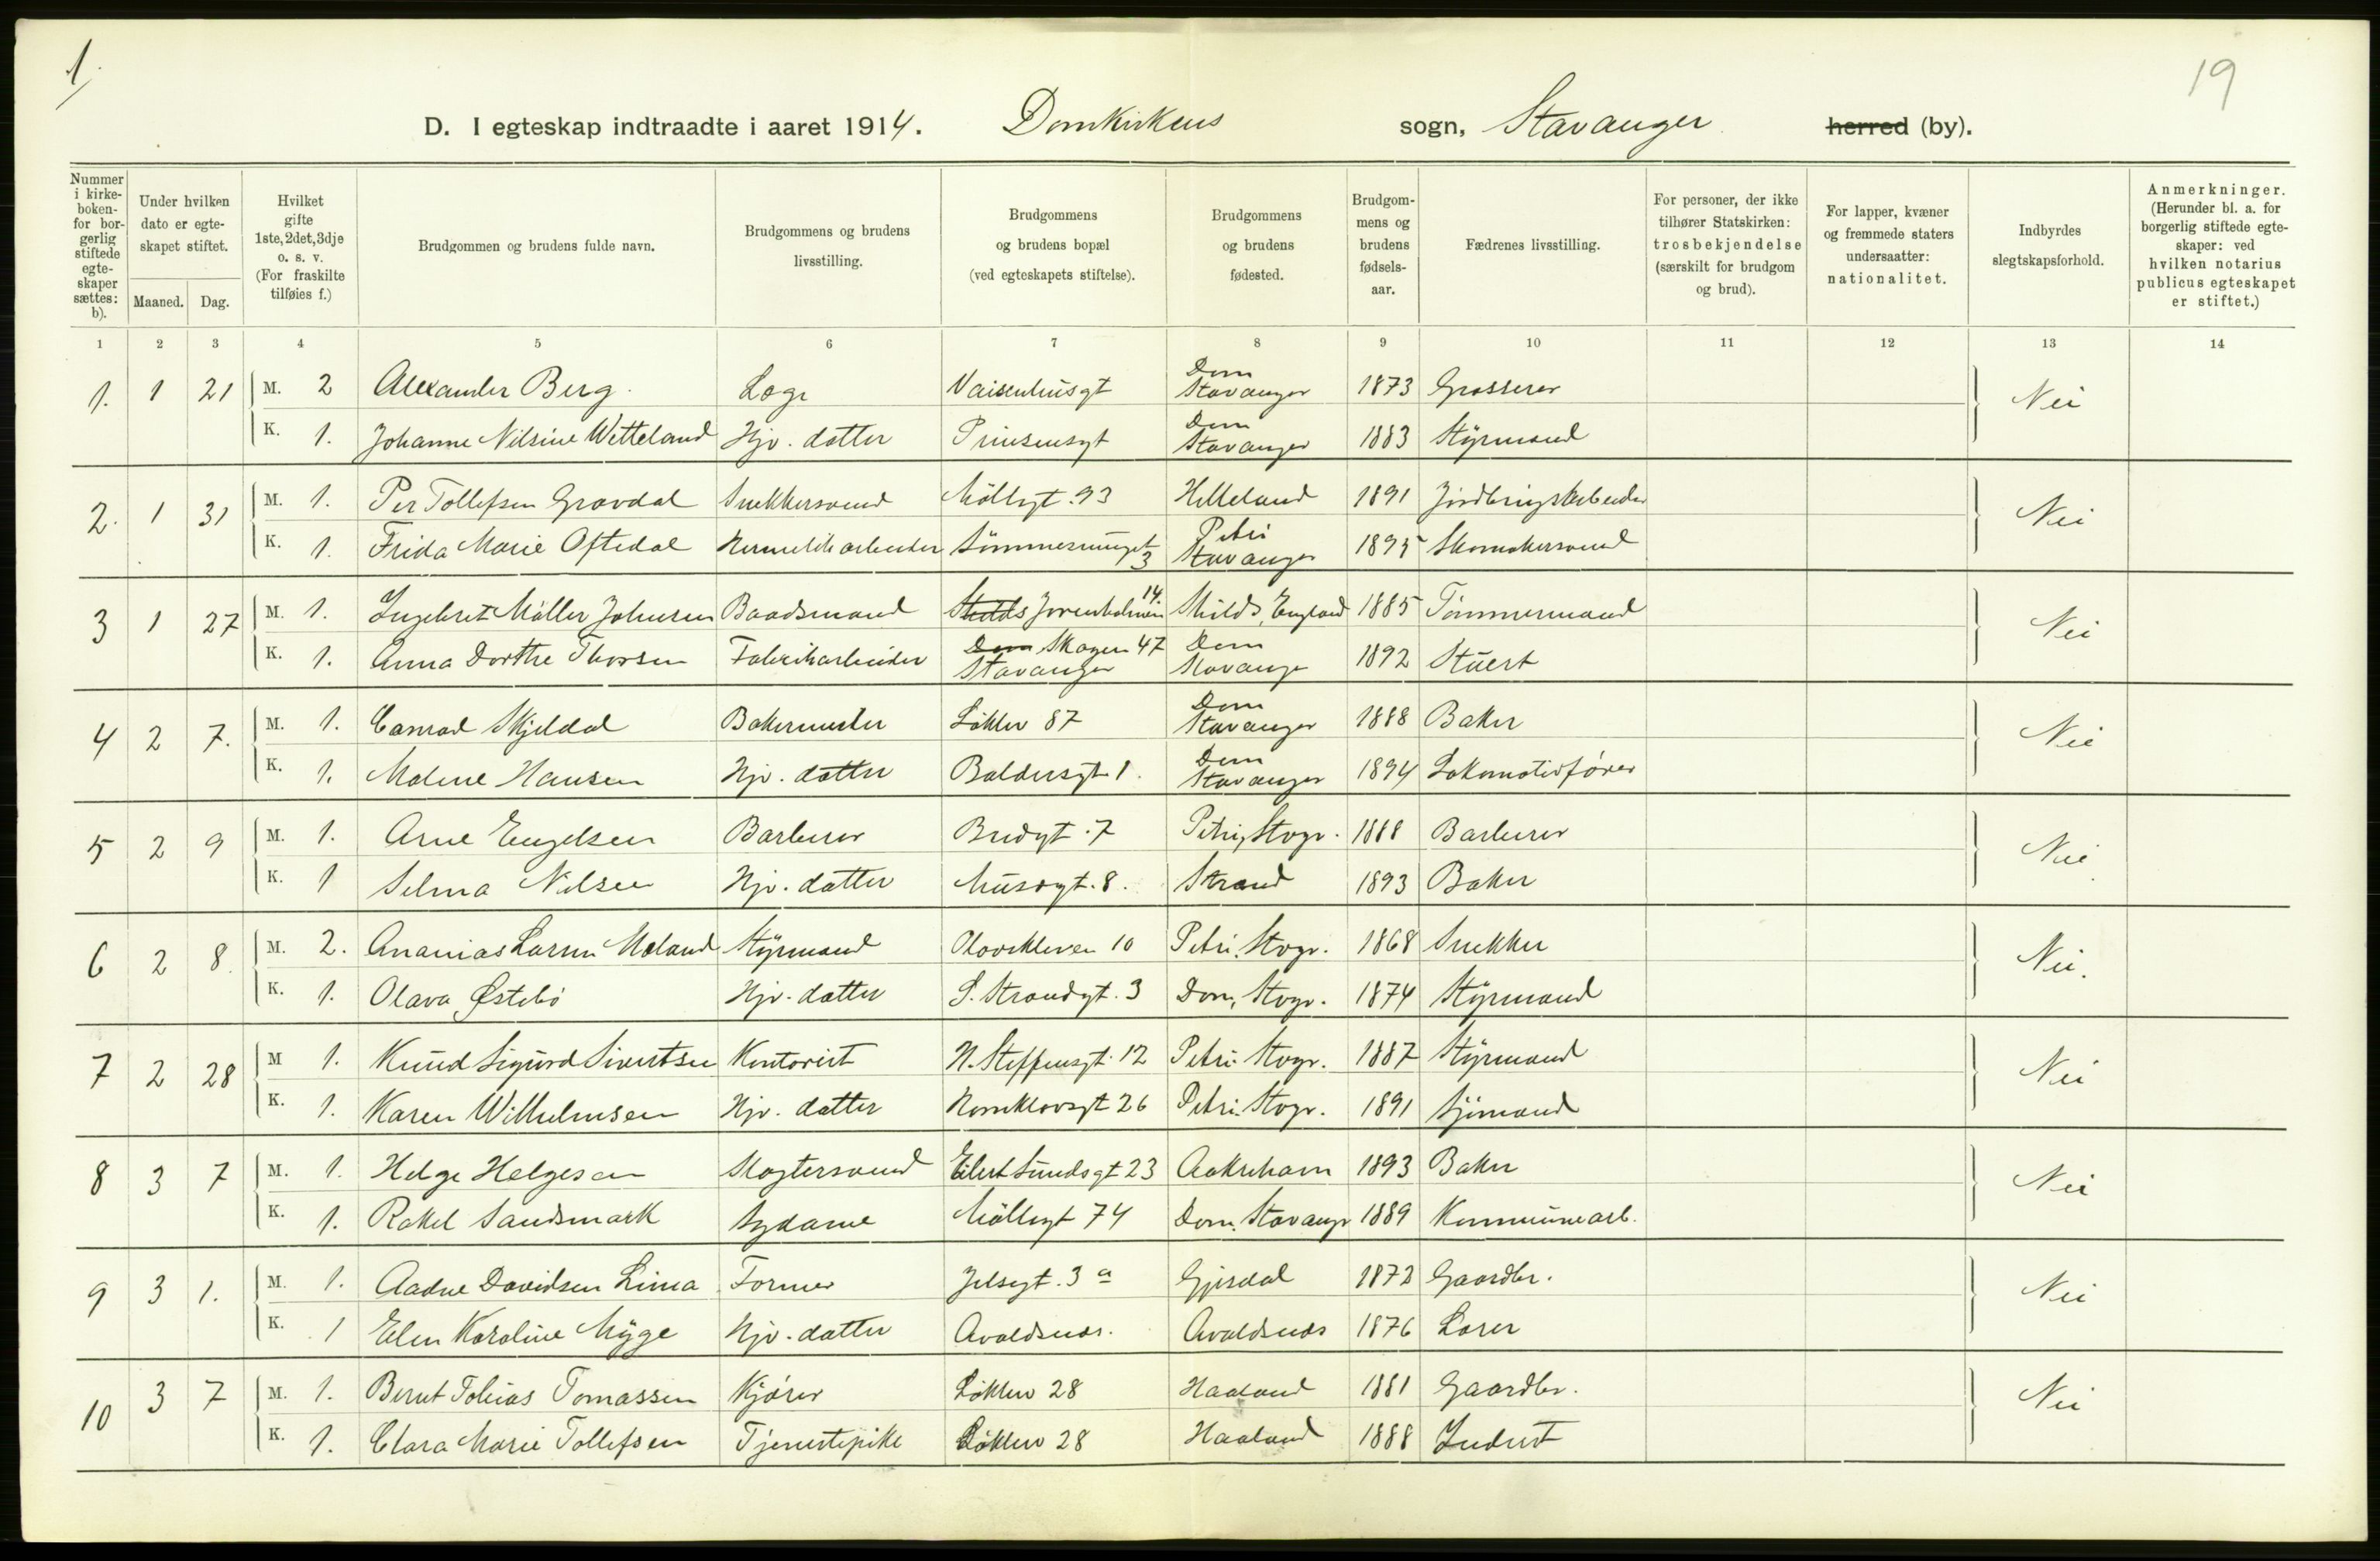 1.
19
D. I egteskap indtraadte i aaret 1914. Domkirkens sogn, Stavanger herred (by).
Nummer i kirkeboken- for borgerlig stiftede egteskaper sættes: b).
Under hvilken dato er egteskapet stiftet.
Maaned. Dag.
Hvilket gifte 1ste, 2det, 3dje o. s. v. (For fraskilte tilføies f.)
Brudgommen og brudens fulde navn.
Brudgommens og brudens livsstilling.
Brudgommens og brudens bopæl (ved egteskapets stiftelse).
Brudgommens og brudens fødested.
Brudgommens og brudens fødselsaar.
Fædrenes livsstilling.
For personer, der ikke tilhører Statskirken: trosbekjendelse (særskilt for brudgom og brud).
For lapper, kvæner og fremmede staters undersaatter: nationalitet.
Indbyrdes slegtskapsforhold.
Anmerkninger. (Herunder bl. a. for borgerlig stiftede egteskaper: ved hvilken notarius publicus egteskapet er stiftet.)
1 2 3 4 5 6 7 8 9 10 11 12 13 14
1. 1 21 M. 2 Alexander Berg. Læge Vaisenhusgt Dom Stavanger 1873 Grosserer Nei
K. 1. Johanne Nilsine Wetteland Hjv. datter Prinsensgt Dom Stavanger 1883 Styrmand
2. 1 31 M. 1. Per Tollefsen Gravdal Snekkersvend Möllegt. 93 Helleland 1891 Nei
K. 1. Frida Marie Oftedal Hermetikarbeider 3 Petri Stavanger 1895 Skomakersvend
3 1 27 M. 1. Ingebret Möller Johnsen Baadsmand Shilds Jorenholmen 14. Shilds, England 1885 Tömmermand Nei
K. 1. Anna Dorthe Thorsen Fabrikarbeider Dom Skagen 47 Stavanger Dom Stavanger 1892 Stuert
4 2 7. M. 1. Conrad Skjeldal Bakermester Lökkev 87 Dom Stavanger 1888 Baker Nei
K. 1. Malene Hansen Hjv. datter Baldersgt 1. Dom Stavanger 1894 Lokomotivförer
5 2 9 M. 1. Arne Engelsen Barberer Bredgt. 7 Petri, Stvgr. 1888 Barberer Nei
K. 1 Selma Nilsen Hjv. datter Musægt. 8. Strand 1893 Baker
6 2 8. M. 2. Ananias Larsen Meland Styrmand Olavskleven 10 Petri, Stvgr. 1868 Snekker Nei.
K. 1. Olava Østebö Hjv. datter S. Strandgt. 3 Dom, Stvgr. 1874 Styrmand
7 2 28 M 1. Knud Sigurd Sivertsen Kontorist N. Steffensgt. 12 Petri Stvgr. 1887 Styrmand Nei
K. 1. Karen Wilhelmsen Hjv. datter Hornklovsgt 26 Petri Stvgr. 1891 Sjömand
8 3 7 M. 1. Helge Helgesen Slagtersvend Eilert Sundsgt 23 Aakrehavn 1893 Baker Nei
K. 1. Rakel Sandsmark Sydame Möllegt 74 Dom. Stavanger 1889 Kommunearb.
9 3 1. M. 1. Aadne Davidsen Lima Former Jelsegt. 3 a Gjesdal 1872 Gaardbr. Nei
K. 1 Elen Karoline Myge Hjv. datter Avaldsnes. Avaldsnes 1876 Lærer
10 3 7 M. 1. Bernt Tobias Tomassen Kjörer Lökkev 28 Haaland 1881 Gaardbr. Nei
K. 1. Clara Marie Tollefsen Tjenestepike Lökkev 28 Haaland 1888 Inderst